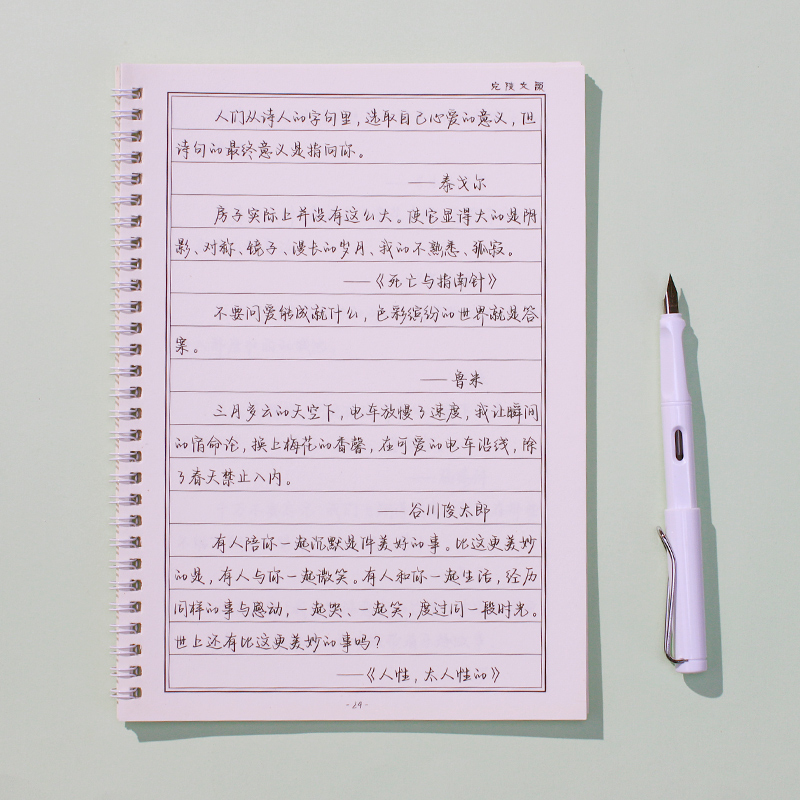 人们从诗人的字句里，选取自己心爱的意义，但
诗句的最终意义是指向你。
——泰戈尔
房子实际上并没有这么大。使它显得大的是阴
影、对称、镜子、漫长的岁月、我的不熟悉、孤寂。
——《死亡与指南针》
不要问爱能成就什么，色彩缤纷的世界就是答
案。
——鲁米
三月多云的天空下，电车放慢了速度，我让瞬间
的宿命论，换上梅花的香馨，在可爱的电车沿线，除
了春天禁止入内。
——谷川俊太郎
有人陪你一起沉默是件美好的事。比这更美妙
的是，有人与你一起微笑。有人和你一起生活，经历
同样的事与感动，一起哭、一起笑，度过同一段时光。
世上还有比这更美妙的事吗？
——《人性，太人性的》
- 29 -